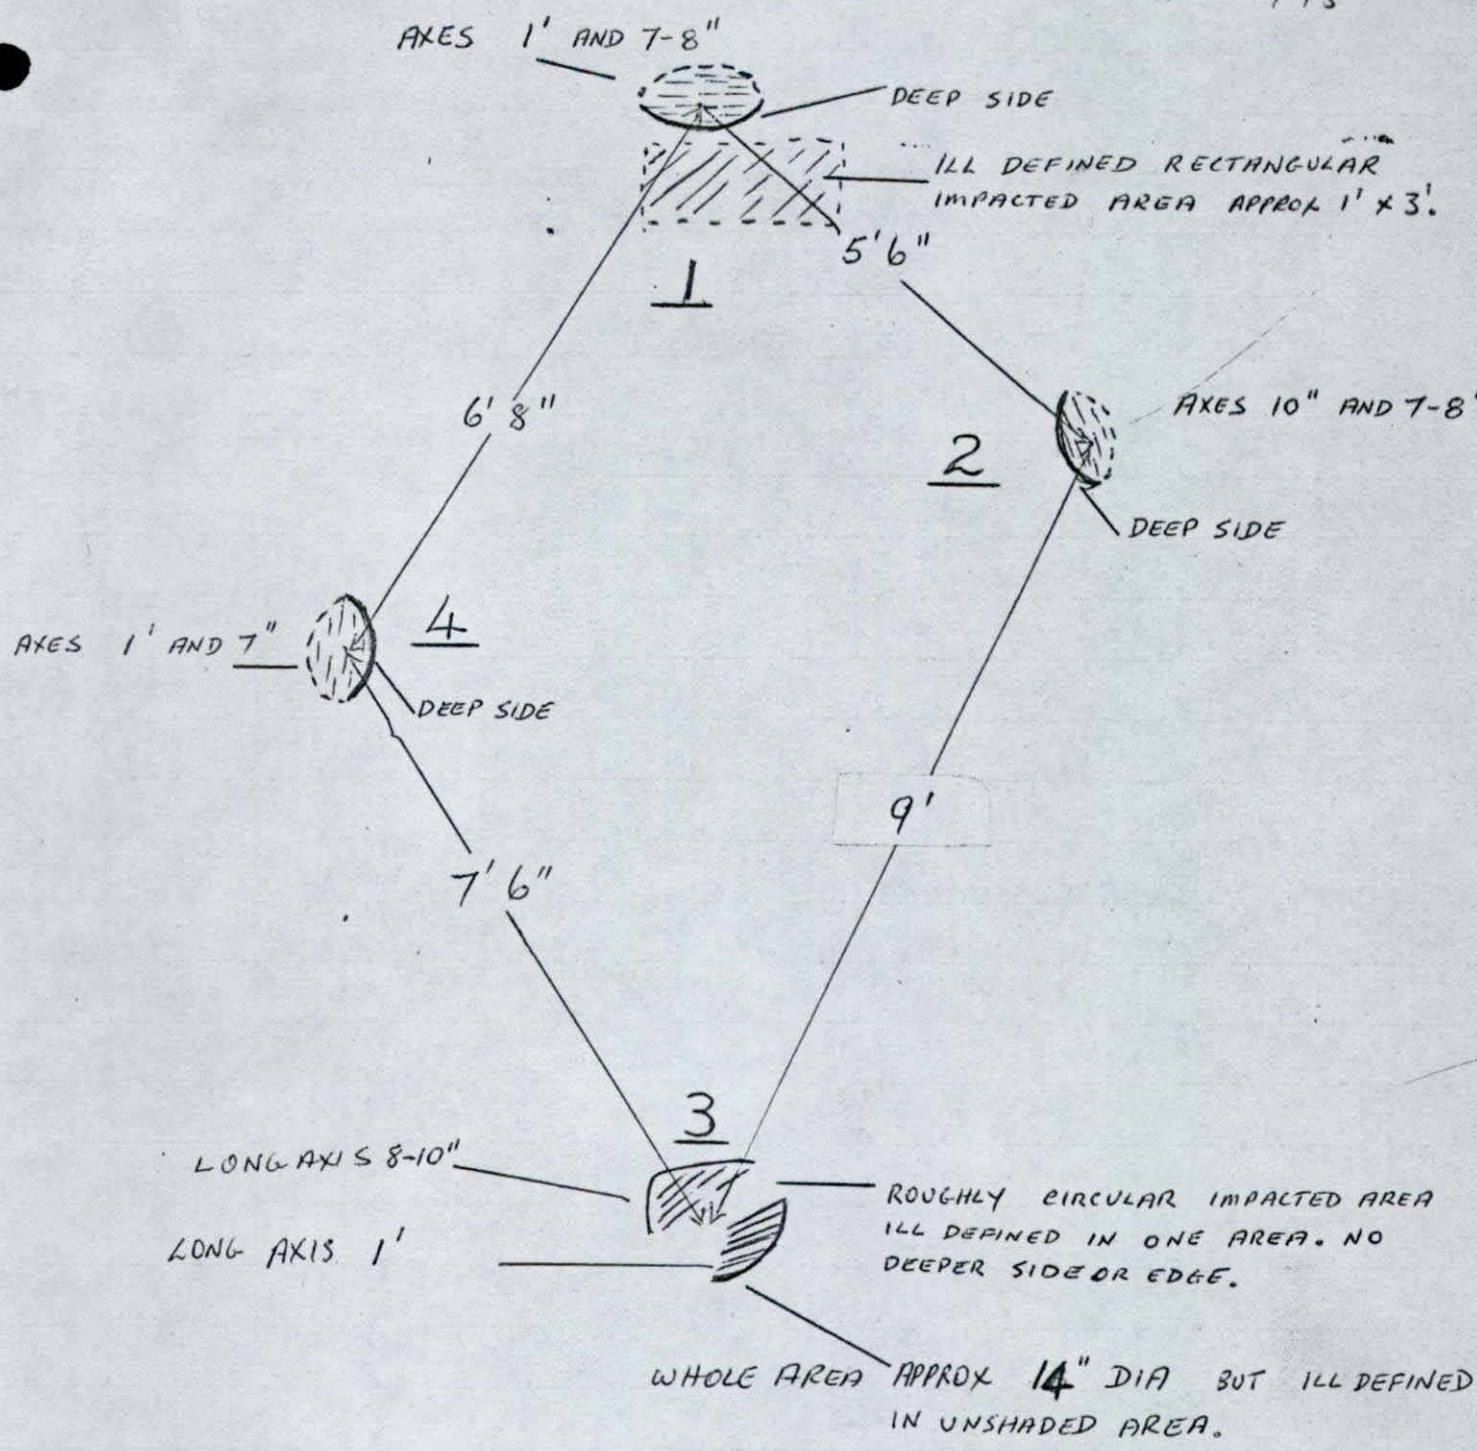 AXES 1' AND 7-8"
DEEP SIDE
ILL DEFINED RECTANGULAR
IMPACTED AREA APPROX 1' x 3'.
5'6"
1
6'8"
AXES 10" AND 7-8"
2
DEEP SIDE
4
AXES 1' AND 7"
DEEP SIDE
9'
7'6"
3
LONG AXIS 8-10"
ROUGHLY CIRCULAR IMPACTED AREA
ILL DEFINED IN ONE AREA. NO
DEEPER SIDE OR EDGE.
LONG AXIS 1'
WHOLE AREA APPROX 14" DIA BUT ILL DEFINED
IN UNSHADED AREA.